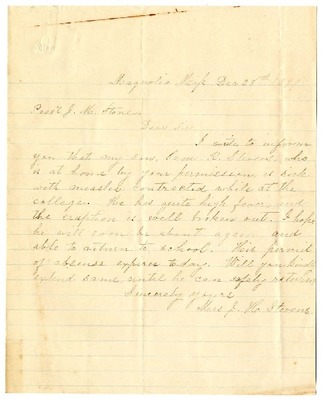 Magnolia Miss Dec 28th
Prest J. M. Stone
Dear Sir
I write to inform
you that my son, R. Stevens, who
is at home by your permission is sick
with measles contracted while at the
college. He has quite high fever, and
the eruption is well broken out. I hope
he will soon be about again and
able to return to school. His permit
of absence expires today. Will you kindly
extend same until he can safely return
Sincerely yours
Mrs J. Stevens.